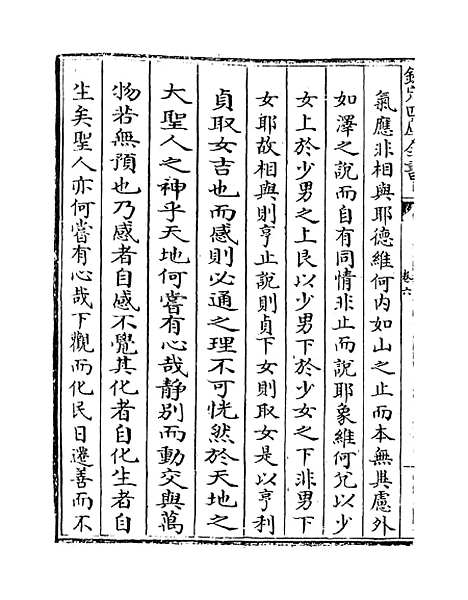 欽定四庫全書
卷六
氣應非相與耶德維何内如山之止而本無異慮外
如澤之說而自有同情非止而說耶象維何兊以少
女上於少男之上艮以少男下於少女之下非男下
女耶故相與則亨止說則貞下女則取女是以亨利
貞取女吉也而感則必通之理不可恍然於天地之
大聖人之神乎天地何嘗有心哉静别而動交與萬
物若無預也乃感者自感不覺其化者自化生者自
生矣聖人亦何嘗有心哉下觀而化民日遷善而不